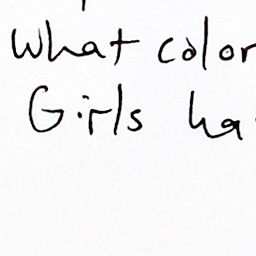 What color
Girls ha